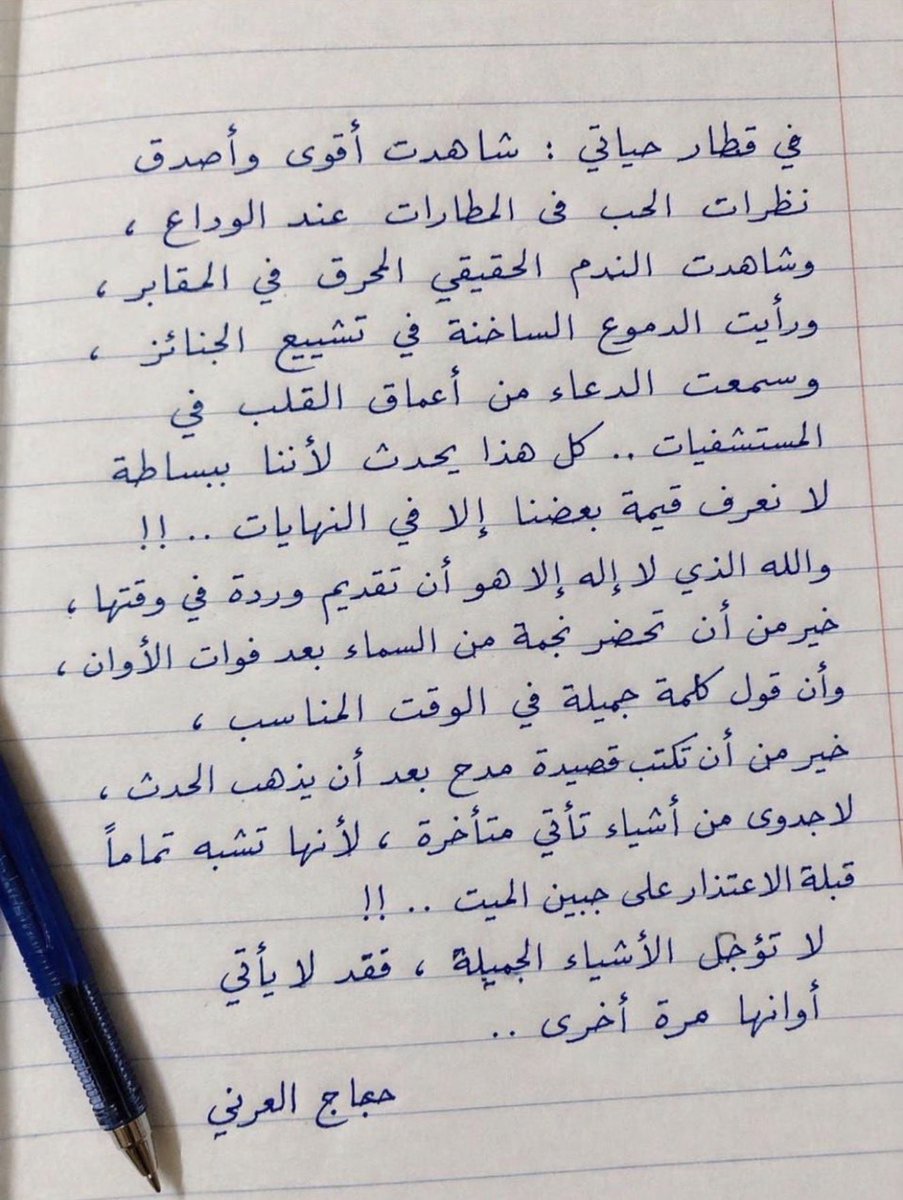 في قطار حياتي : شاهدت أقوى وأصدق
نظرات الحب فى المطارات عند الوداع ،
وشاهدت الندم الحقيقي المحرق في المقابر ،
ورأيت الدموع الساخنة في تشييع الجنائز ،
وسمعت الدعاء من أعماق القلب في
المستشفيات .. كل هذا يحدث لأننا ببساطة
لا نعرف قيمة بعضنا إلا في النهايات .. !!
والله الذي لا إله إلا هو أن تقديم وردة في وقتها ،
خير من أن تحضر نجمة من السماء بعد فوات الأوان ،
وأن قول كلمة جميلة في الوقت المناسب ،
خير من أن تكتب قصيدة مدح بعد أن يذهب الحدث ،
لا جدوى من أشياء تأتي متأخرة ، لأنها تشبه تماماً
قبلة الاعتذار على جبين الميت .. !!
لا تؤجل الأشياء الجميلة ، فقد لا يأتي
أوانها مرة أخرى ..
حجاج العرني